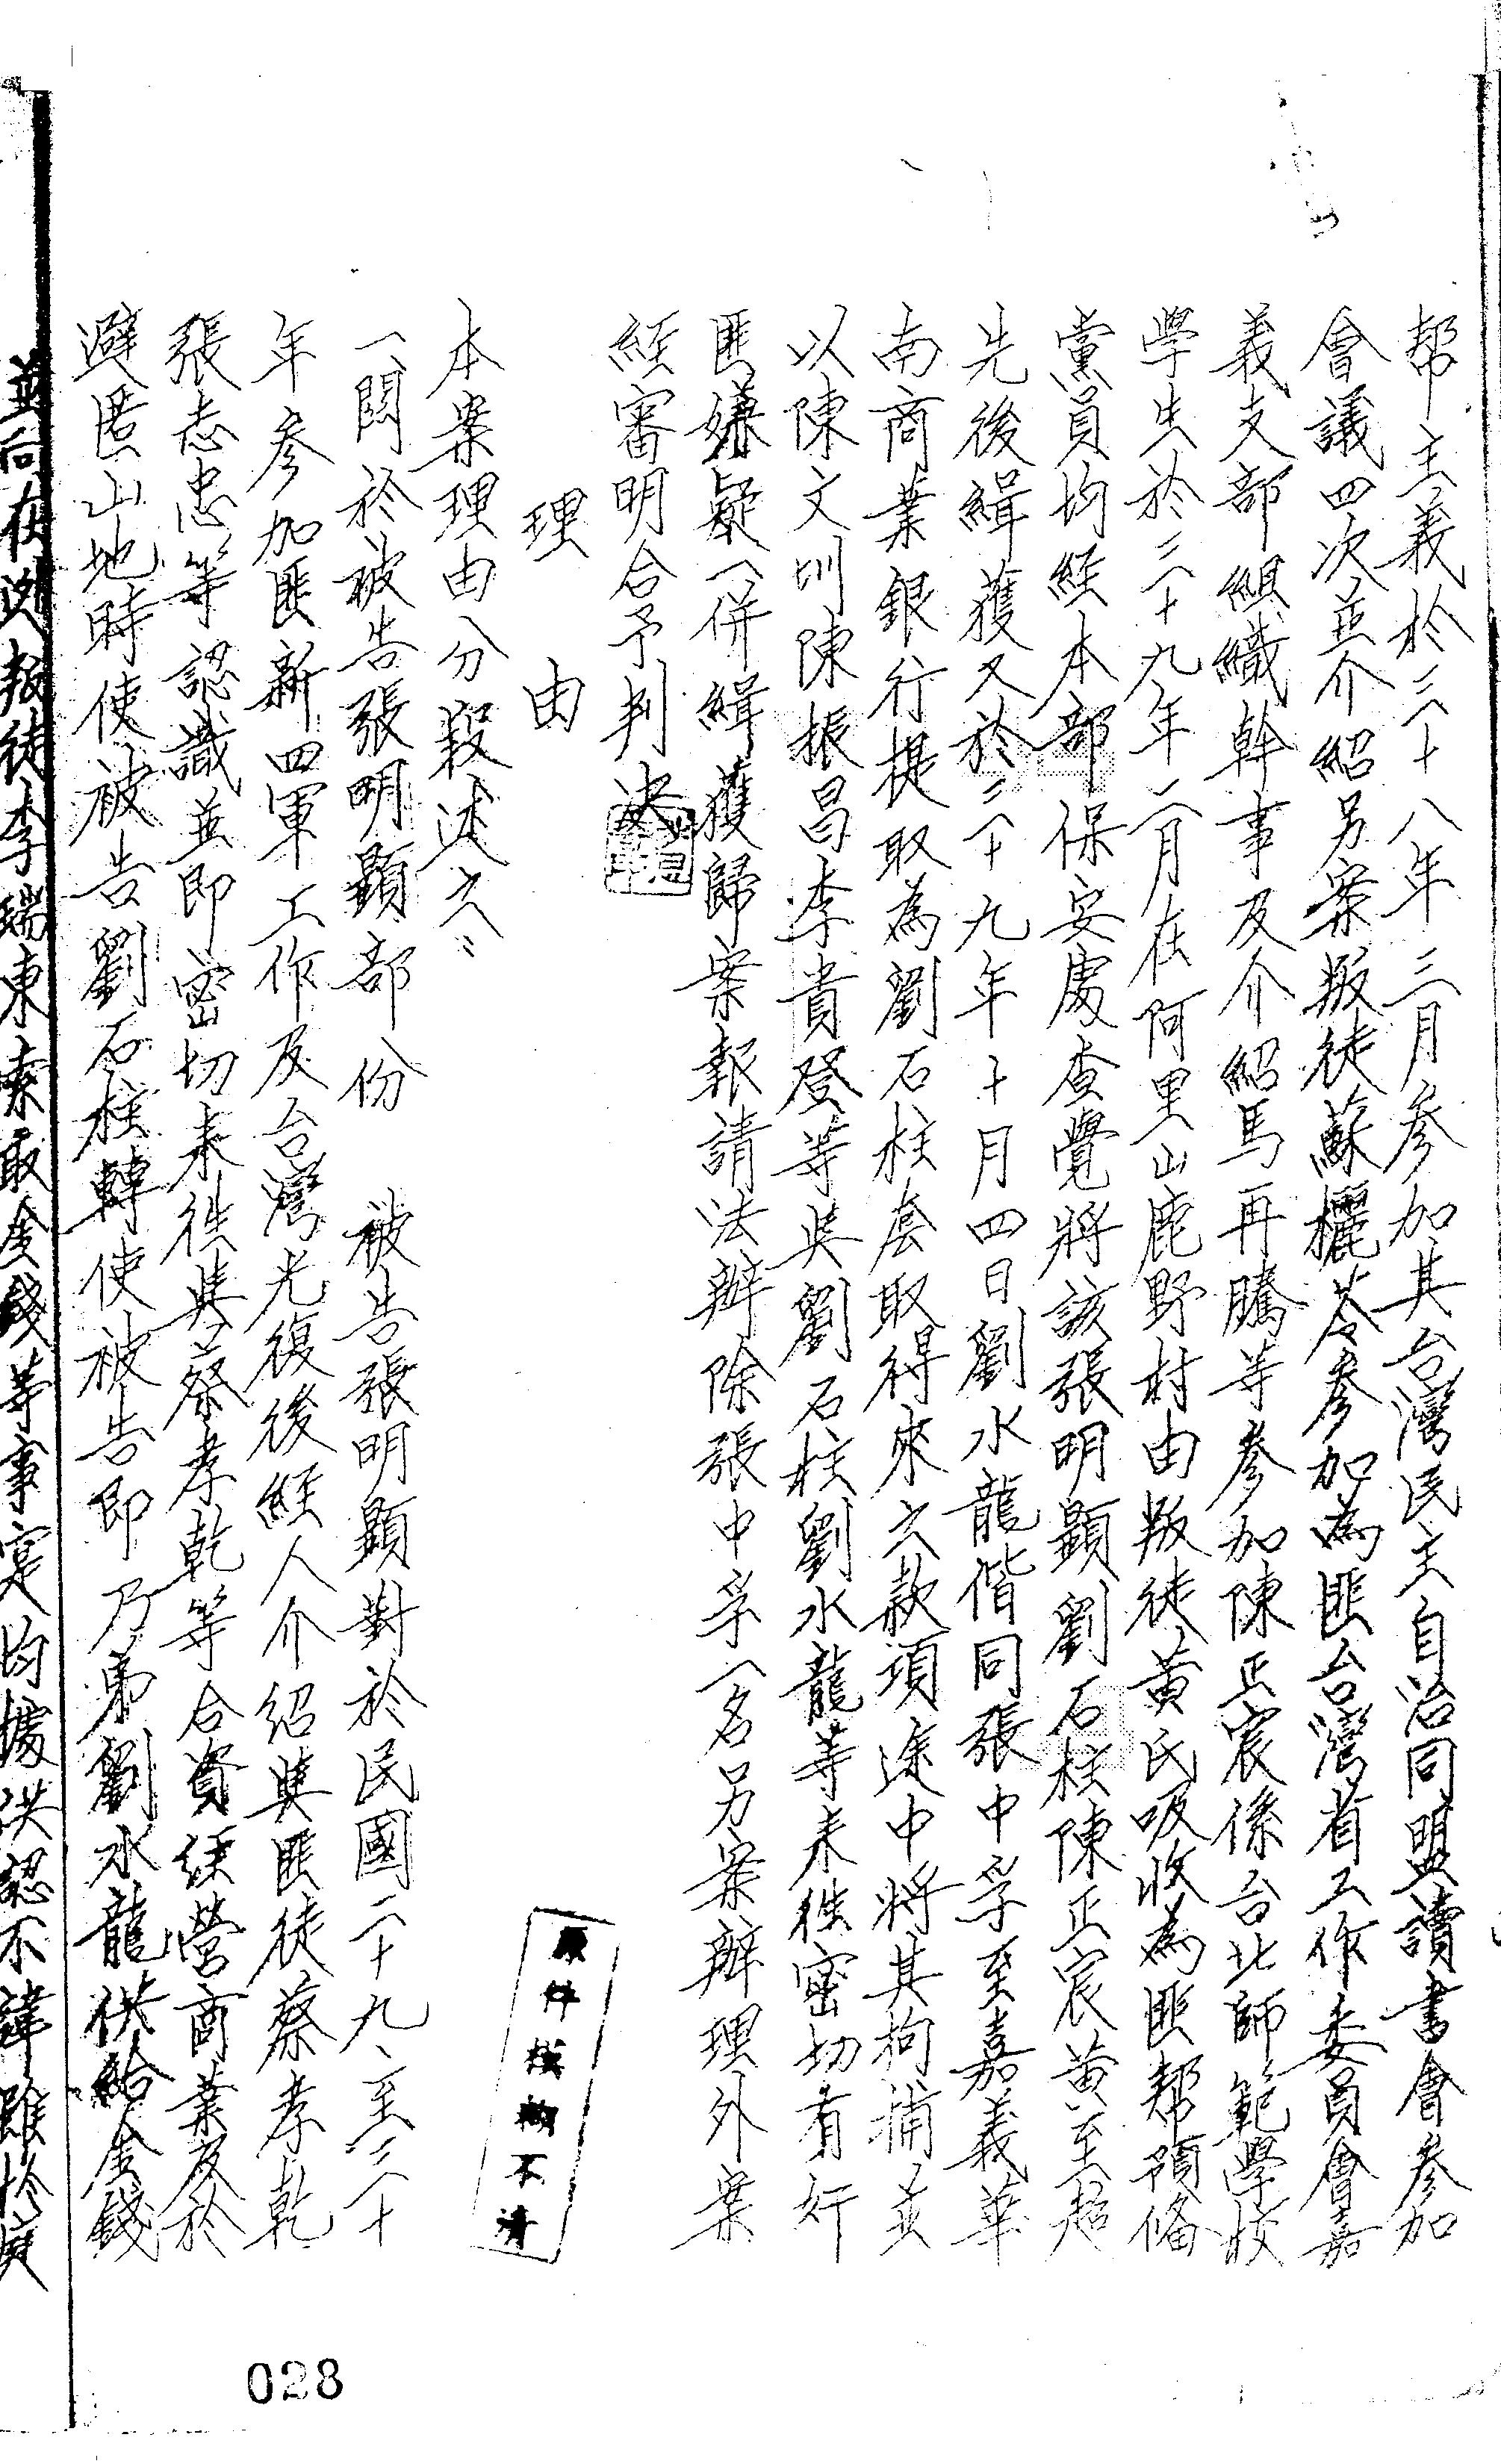 幇主義於三十八年三月參加其台灣民主自治同盟讀書會參加
會議四次並介紹另案叛徒蘇欐荅參加為匪台灣省工作委員會嘉
義支部組織幹事及介紹馬再騰等參加陳正宸係台北師範學校
學生於三十九年二月在阿里山鹿野村由叛徒黃氏吸收為匪幇預備
黨員均經本部保安處查覺將該張明顯劉石柱陳正宸黃至超
先後緝獲又於三十九年十月四日劉水龍偕同張中孚至嘉義華
南商業銀行提取為劉石柱套取得來之款項途中將其拘捕並
以陳文圳陳振昌李貴登等與劉石柱劉水龍等來往密切有奸
匪嫌疑一併緝獲歸案報請法辦除張中孚一名另案辦理外案
經審明合予判決
理由
本案理由分段述之:
一、關於被告張明顯部份 被告張明顯對於民國二十九、至三十
年參加匪新四軍工作及台灣光復後經人介紹與匪徒蔡孝乾
張志忠等認識並即密切來往與蔡孝乾等合資經營商業及於
避匿山地時使被告劉石柱轉使被告即乃弟劉水龍供給金錢
並向在逃叛徒李瑞東索取金錢等事寔均據供認不諱雖於庭
原件模糊不清
028